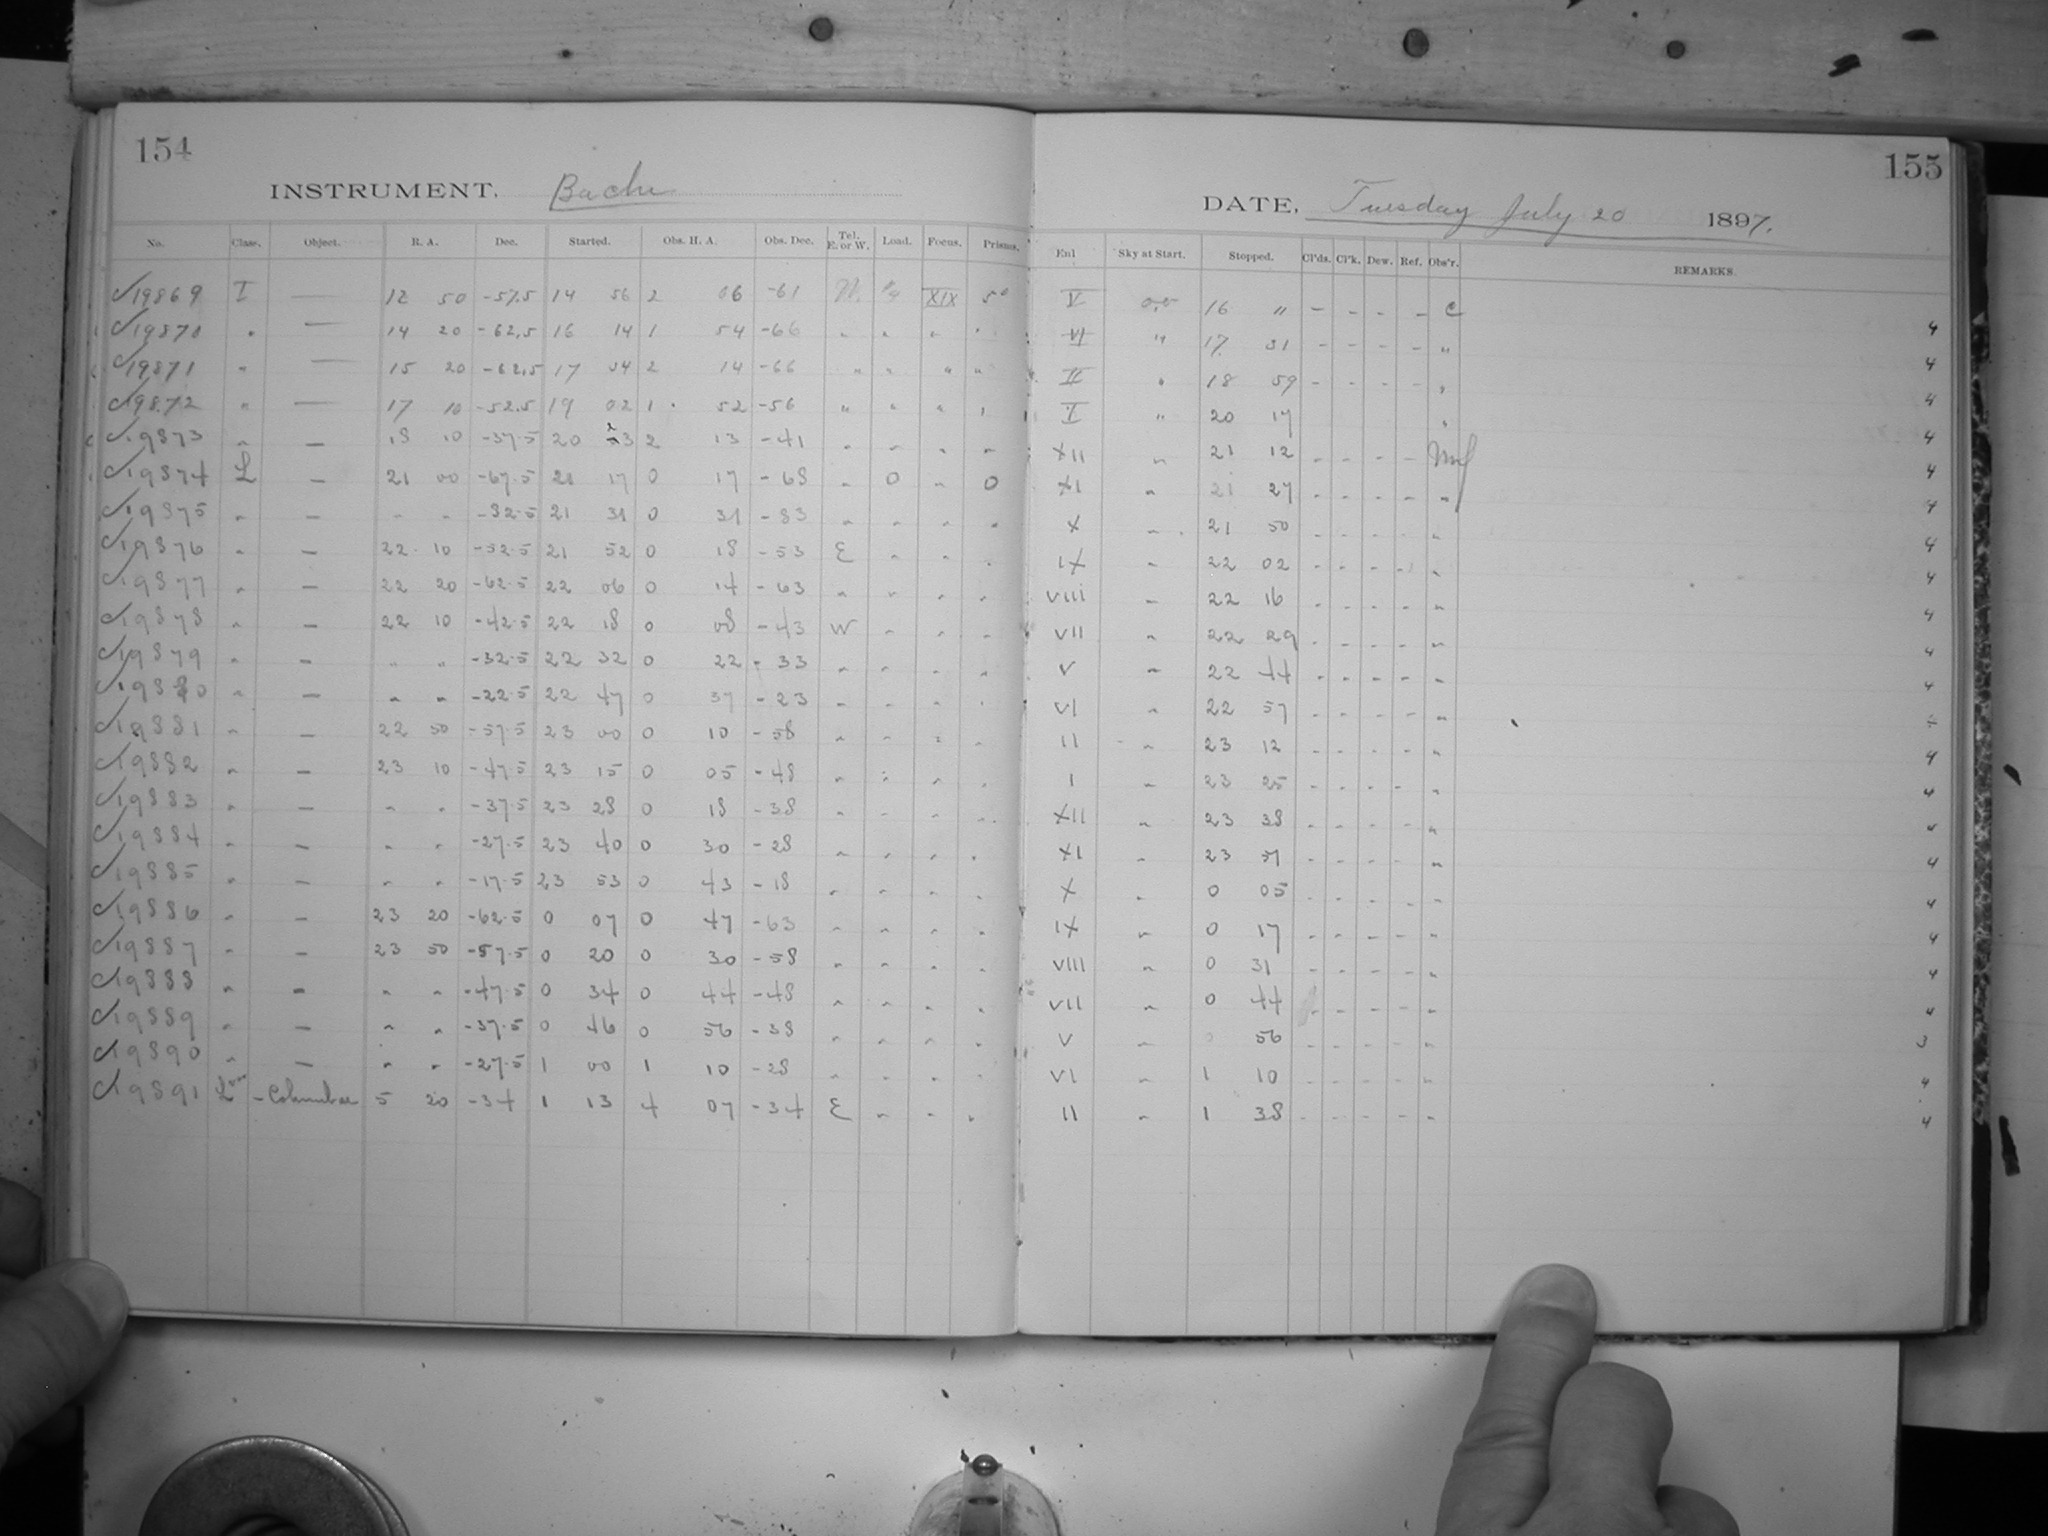 154
INSTRUMENT. Bache
No. Class. Object. R. A. Dec. Started. Obs. H. A. Obs. Dec. Tel. E. or W. Load. Focus. Prisms.
19869 I — 12 50 -57.5 14 56 2 06 -61 W. XIX 50
19870 " — 14 20 -62.5 16 14 1 54 -66 " " " "
19871 " — 15 20 -62.5 17 34 2 14 -66 " " " "
19872 " — 17 10 -52.5 19 02 1 52 -56 " " " "
19873 " — 18 10 -37.5 20 23 2 13 -41 " " " "
19874 L — 21 00 -67.5 21 17 0 17 -68 " 0 " 0
19875 " — " " -82.5 21 31 0 31 -83 " " " "
19876 " — 22 10 -52.5 21 52 0 18 -53 E " " "
19877 " — 22 20 -62.5 22 06 0 14 -63 " " " "
19878 " — 22 10 -42.5 22 18 0 08 -43 W " " "
19879 " — " " -32.5 22 32 0 22 -33 " " " "
19880 " — " " -22.5 22 47 0 37 -23 " " " "
19881 " — 22 50 -57.5 23 00 0 10 -58 " " " "
19882 " — 23 10 -47.5 23 15 0 05 -48 " " " "
19883 " — " " -37.5 23 28 0 18 -38 " " " "
19884 " — " " -27.5 23 40 0 30 -28 " " " "
19885 " — " " -17.5 23 53 0 43 -18 " " " "
19886 " — 23 20 -62.5 0 07 0 47 -63 " " " "
19887 " — 23 50 -57.5 0 20 0 30 -58 " " " "
19888 " — " " -47.5 0 34 0 44 -48 " " " "
19889 " — " " -37.5 0 46 0 56 -38 " " " "
19890 " — " " -27.5 1 00 1 10 -28 " " " "
19891 L - Columbae 5 20 -34 1 13 4 07 -34 E " " "
155
DATE, Tuesday July 20 1897.
Enl Sky at Start. Stopped. Cl'ds. Cl'k. Dew. Ref. Obs'r. REMARKS.
V 0.0 16 " - - - - C
VI " 17 31 - - - - " 4
II " 18 59 - - - - " 4
I " 20 17 " 4
XII " 21 12 - - - - 4
XI " 21 27 - - - - " 4
X " 21 50 - - - - " 4
IX " 22 02 - - - - " 4
VIII " 22 16 - - - - " 4
VII " 22 29 - - - - " 4
V " 22 44 - - - - " 4
VI " 22 57 - - - - " 4
II " 23 12 - - - - "
I " 23 25 - - - - " 4
XII " 23 38 - - - - " 4
XI " 23 51 - - - - " 4
X " 0 05 - - - - " 4
IX " 0 17 - - - - " 4
VIII " 0 31 - - - - " 4
VII " 0 44 - - - - " 4
V " 56 - - - - " 4
VI " 1 10 - - - - " 3
II " 1 38 - - - - " 4
4